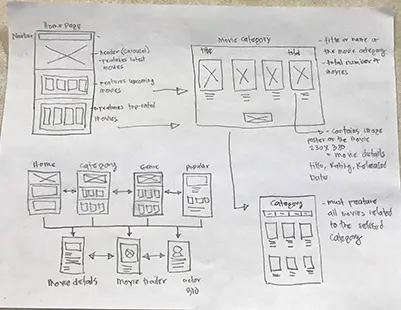 Home Page
Navbar
header (carousel)
- features latest
movies
- features upcoming
movies
- features top-rated
movies
Movie category
title
total
- title or name of
the movie category
- total number of
movies
- contains image
poster of the movie
- movie details
title, Rating, Released
Date
Home
category
Genre
popular
movie details
movie trailer
actor
Category
- must feature
all movies related
to the selected
category